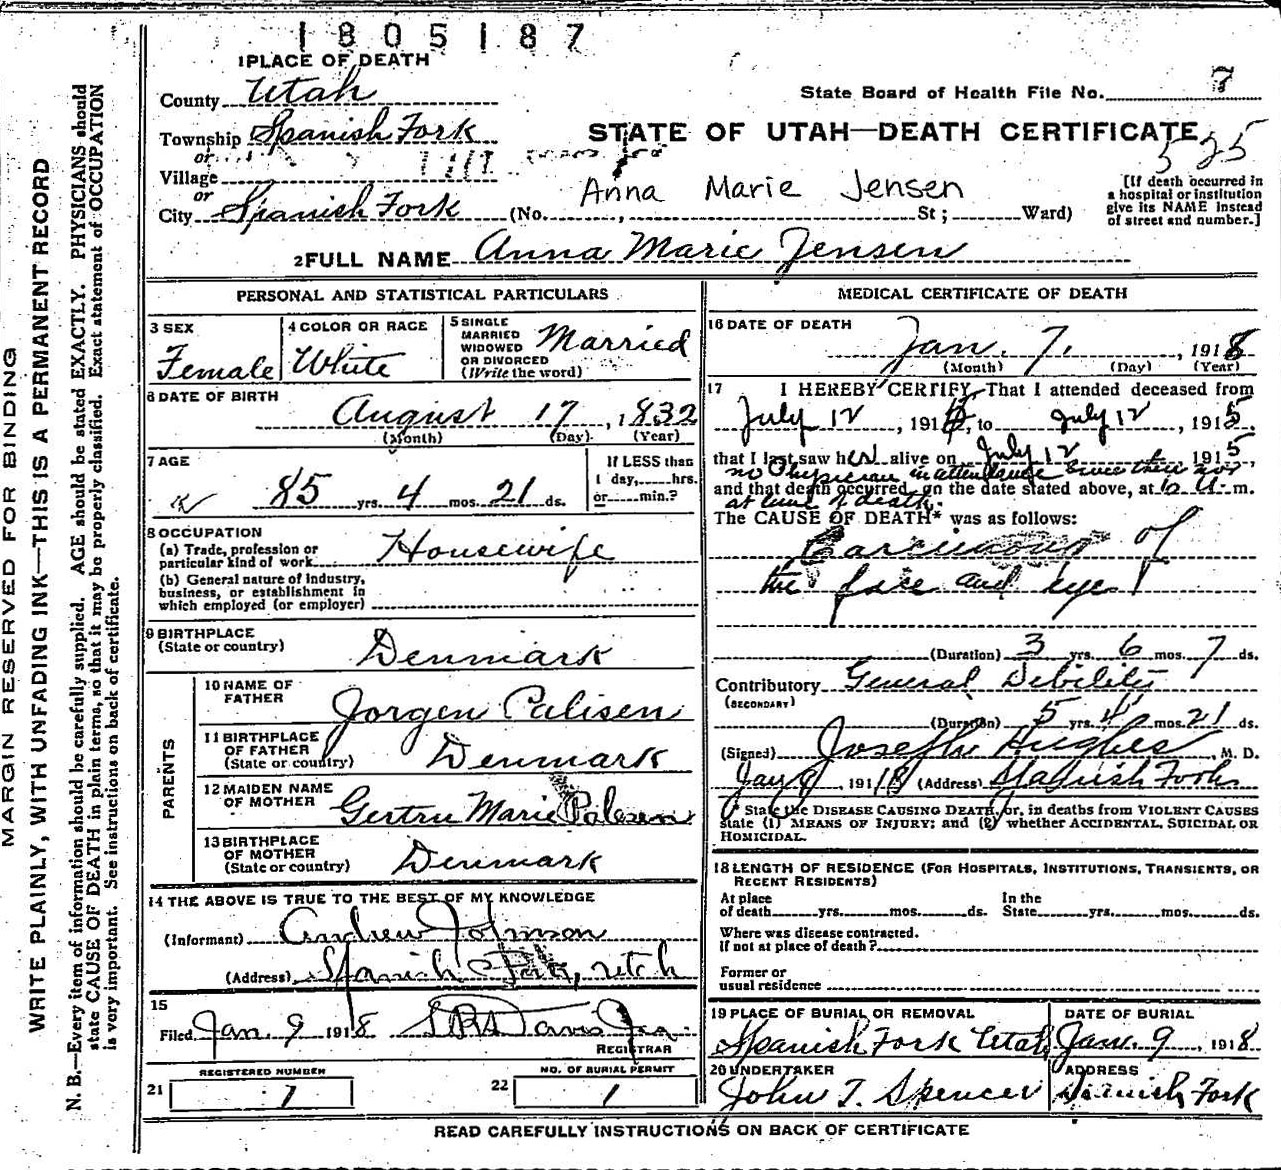 1805187
1 PLACE OF DEATH
County Utah
State Board of Health File No. 7
Township Spanish Fork
STATE OF UTAH—DEATH CERTIFICATE
525
or
Village
or
Anna Marie Jensen
City Spanish Fork (No. , St; Ward)
[If death occurred in
a hospital or institution
give its NAME instead
of street and number.]
2 FULL NAME Anna Marie Jensen
PERSONAL AND STATISTICAL PARTICULARS
3 SEX
Female
4 COLOR OR RACE
White
5 SINGLE
MARRIED
WIDOWED
OR DIVORCED
(Write the word)
Married
6 DATE OF BIRTH
August 17, 1832
(Month) (Day) (Year)
7 AGE
85 yrs. 4 mos. 21 ds.
If LESS than
1 day, hrs.
or min.?
8 OCCUPATION
(a) Trade, profession or
particular kind of work Housewife
(b) General nature of Industry,
business, or establishment in
which employed (or employer)
9 BIRTHPLACE
(State or country)
Denmark
PARENTS
10 NAME OF
FATHER
Jorgen Palisen
11 BIRTHPLACE
OF FATHER
(State or country)
Denmark
12 MAIDEN NAME
OF MOTHER
Gertru Marie Palesen
13 BIRTHPLACE
OF MOTHER
(State or country)
Denmark
14 THE ABOVE IS TRUE TO THE BEST OF MY KNOWLEDGE
(Informant) Andrew Johnson
(Address) Spanish Fork, Utah
15
Filed Jan. 9 1918
REGISTRAR
REGISTERED NUMBER
21 7
NO. OF BURIAL PERMIT
22 1
MEDICAL CERTIFICATE OF DEATH
16 DATE OF DEATH
Jan. 7, , 1918
(Month) (Day) (Year)
17 I HEREBY CERTIFY, That I attended deceased from
July 12, 191 , to July 12, 1915.
that I last saw her alive on July 12 1915
no Physician in attendance since then nor
and that death occurred, on the date stated above, at m.
at time of death.
The CAUSE OF DEATH* was as follows:
Carcinoma of
the face and eye
(Duration) 3 yrs. 6 mos. 7 ds.
Contributory General Debility
(SECONDARY)
(Duration) 5 yrs. 4 mos. 21 ds.
(Signed) Joseph Hughes, M. D.
Jan 9, 191 18 (Address) Spanish Fork
* State the DISEASE CAUSING DEATH, or, in deaths from VIOLENT CAUSES
state (1) MEANS OF INJURY; and (2) whether ACCIDENTAL, SUICIDAL OR
HOMICIDAL.
18 LENGTH OF RESIDENCE (FOR HOSPITALS, INSTITUTIONS, TRANSIENTS, OR
RECENT RESIDENTS)
At place
of death yrs. mos. ds.
In the
State yrs. mos. ds.
Where was disease contracted.
If not at place of death?
Former or
usual residence
19 PLACE OF BURIAL OR REMOVAL
Spanish Fork Utah
DATE OF BURIAL
Jan. 9, 1918
20 UNDERTAKER
John T. Spencer
ADDRESS
Spanish Fork
READ CAREFULLY INSTRUCTIONS ON BACK OF CERTIFICATE
MARGIN RESERVED FOR BINDING
WRITE PLAINLY, WITH UNFADING INK—THIS IS A PERMANENT RECORD
N. B.—Every item of information should be carefully supplied. AGE should be stated EXACTLY. PHYSICIANS should
state CAUSE OF DEATH in plain terms, so that it may be properly classified. Exact statement of OCCUPATION
is very important. See instructions on back of certificate.